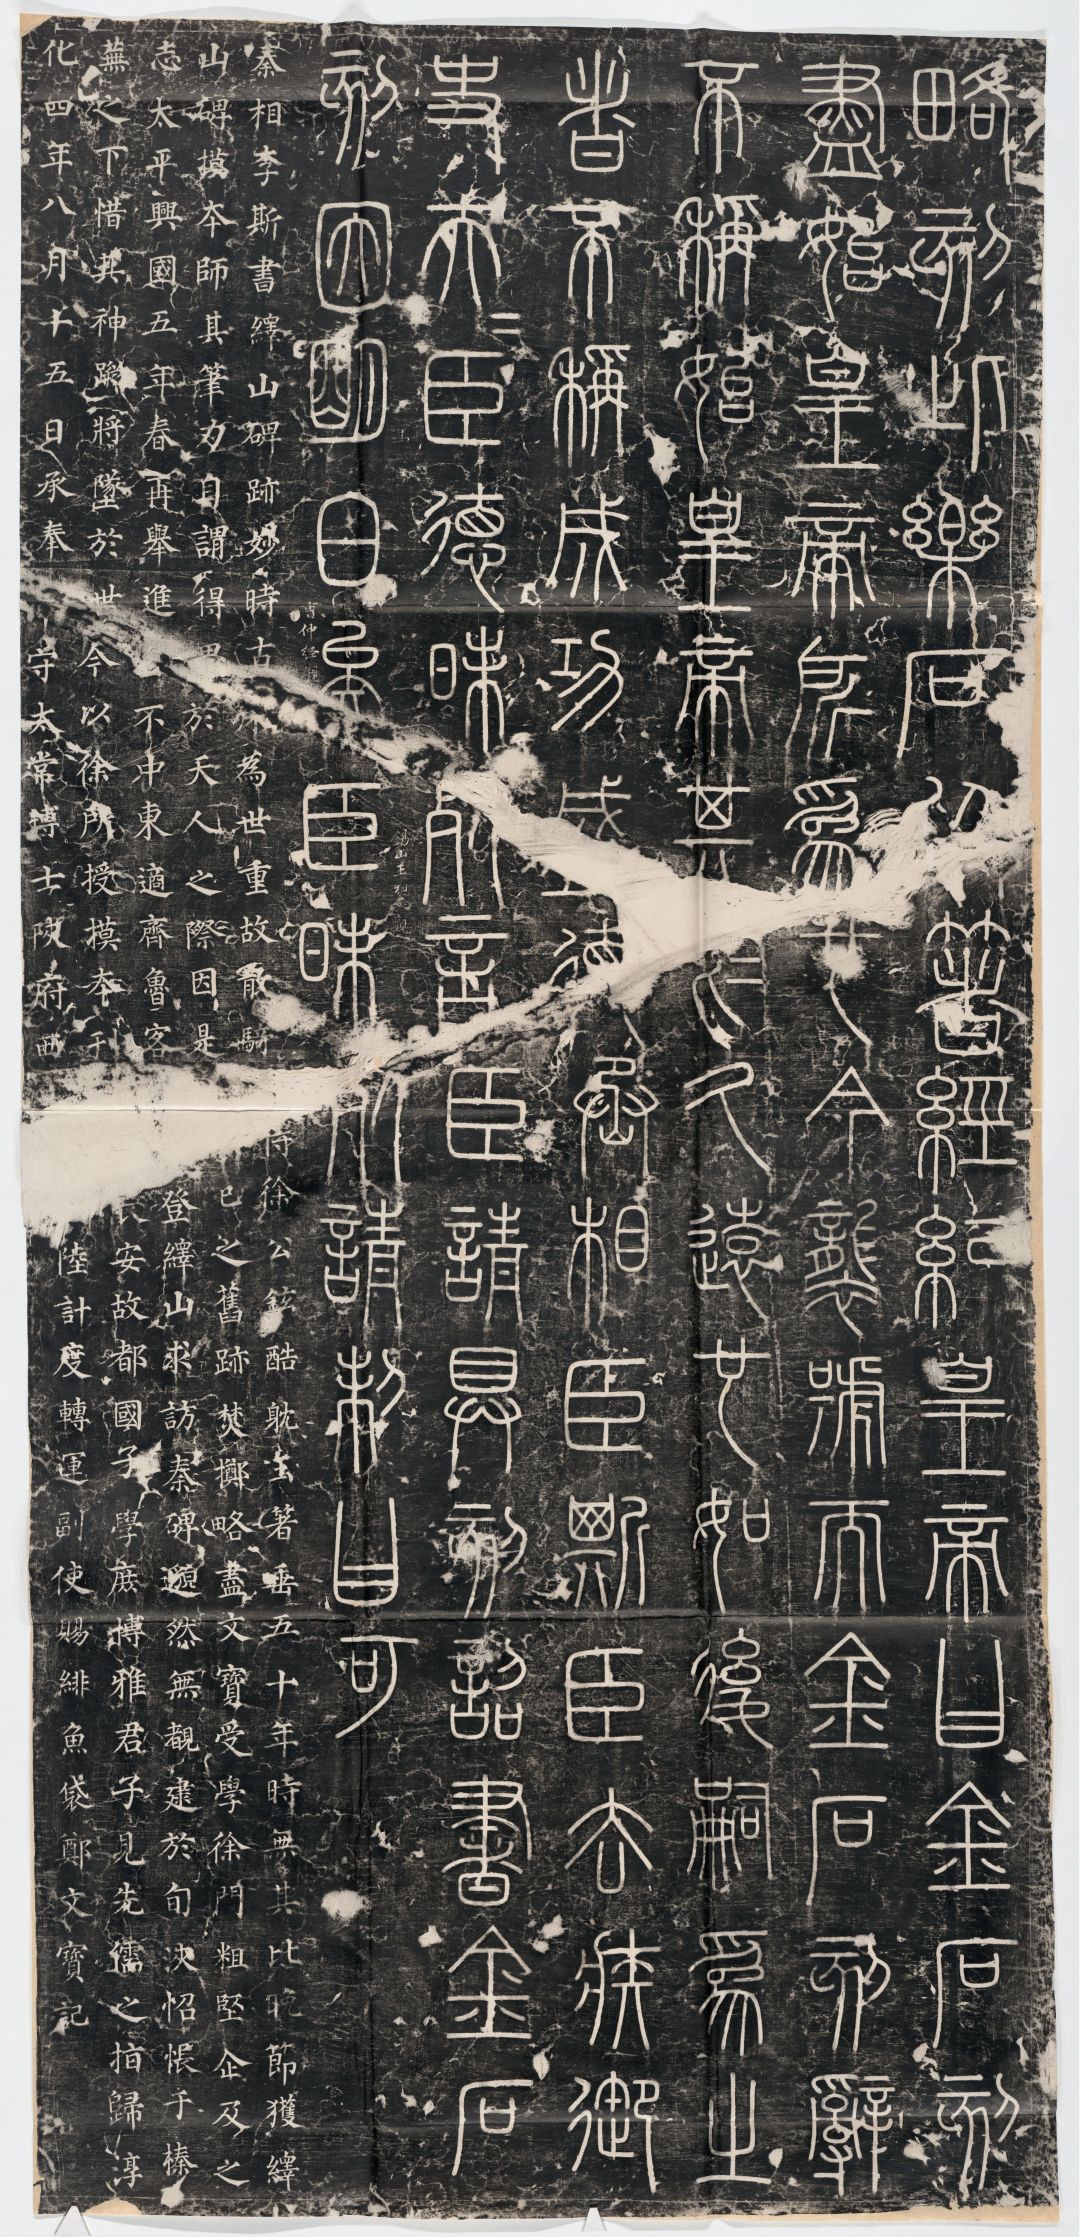 略刻此樂石以著經紀皇帝曰金石刻
盡始皇帝所為也今襲號而金石刻辭
不稱始皇帝其於久遠也如後嗣為之
者不稱成功盛德丞相臣斯臣去疾御
史夫=臣德昧死言臣請具刻詔書金石
刻因明白矣臣昧死請制曰可
秦相李斯書繹山碑跡妙時古殊為世重故散騎侍徐公鉉酷躭玉箸垂五十年時無其比晚節獲繹
山碑摸本師其筆力自謂得思於天人之際因是已之舊跡焚擲略盡文寶受學徐門粗堅企及之
志太平興國五年春再舉進不中東適齊魯客登繹山求訪秦碑邈然無覩逮於旬浹怊悵于榛
蕪之下惜其神蹤將墜於世今以徐所授摸本刊長安故都國子學庶博雅君子見先儒之指歸淳
化四年八月十五日承奉守太常博士陝府西陸計度轉運副使賜緋魚袋鄭文寶記